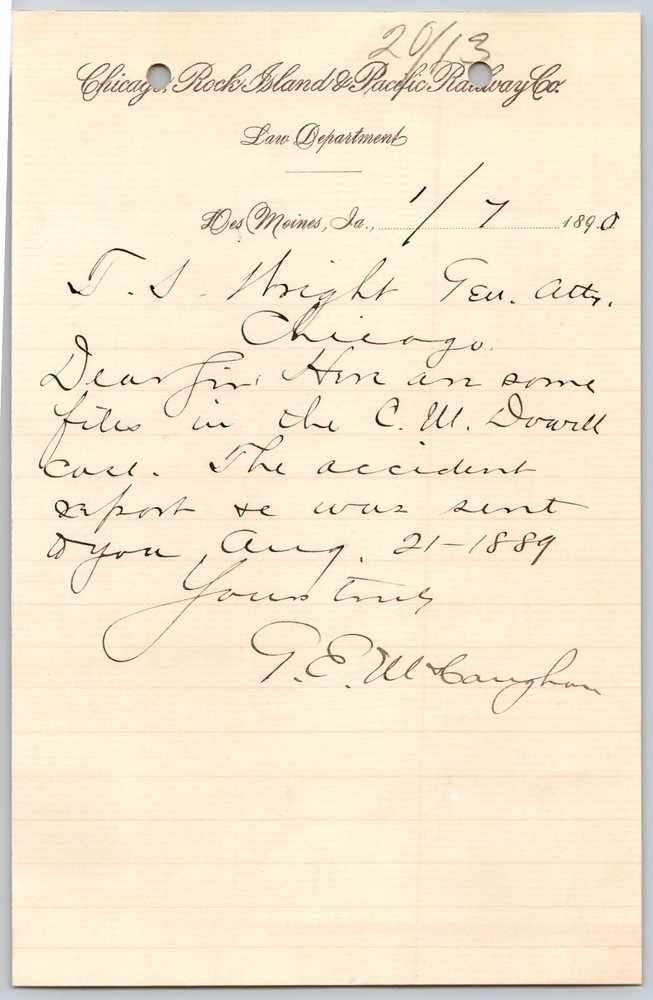 20/13
Chicago, Rock Island & Pacific Railway Co.
Law Department
Des Moines, Ia., 1/7 1890
T. S. Wright Gen. Atty.
Chicago.
Dear Sir: Here are some
files in the C. W. Dowell
case. The accident
report &c was sent
to you Aug. 21-1889
Yours truly
G. E. McCaughan